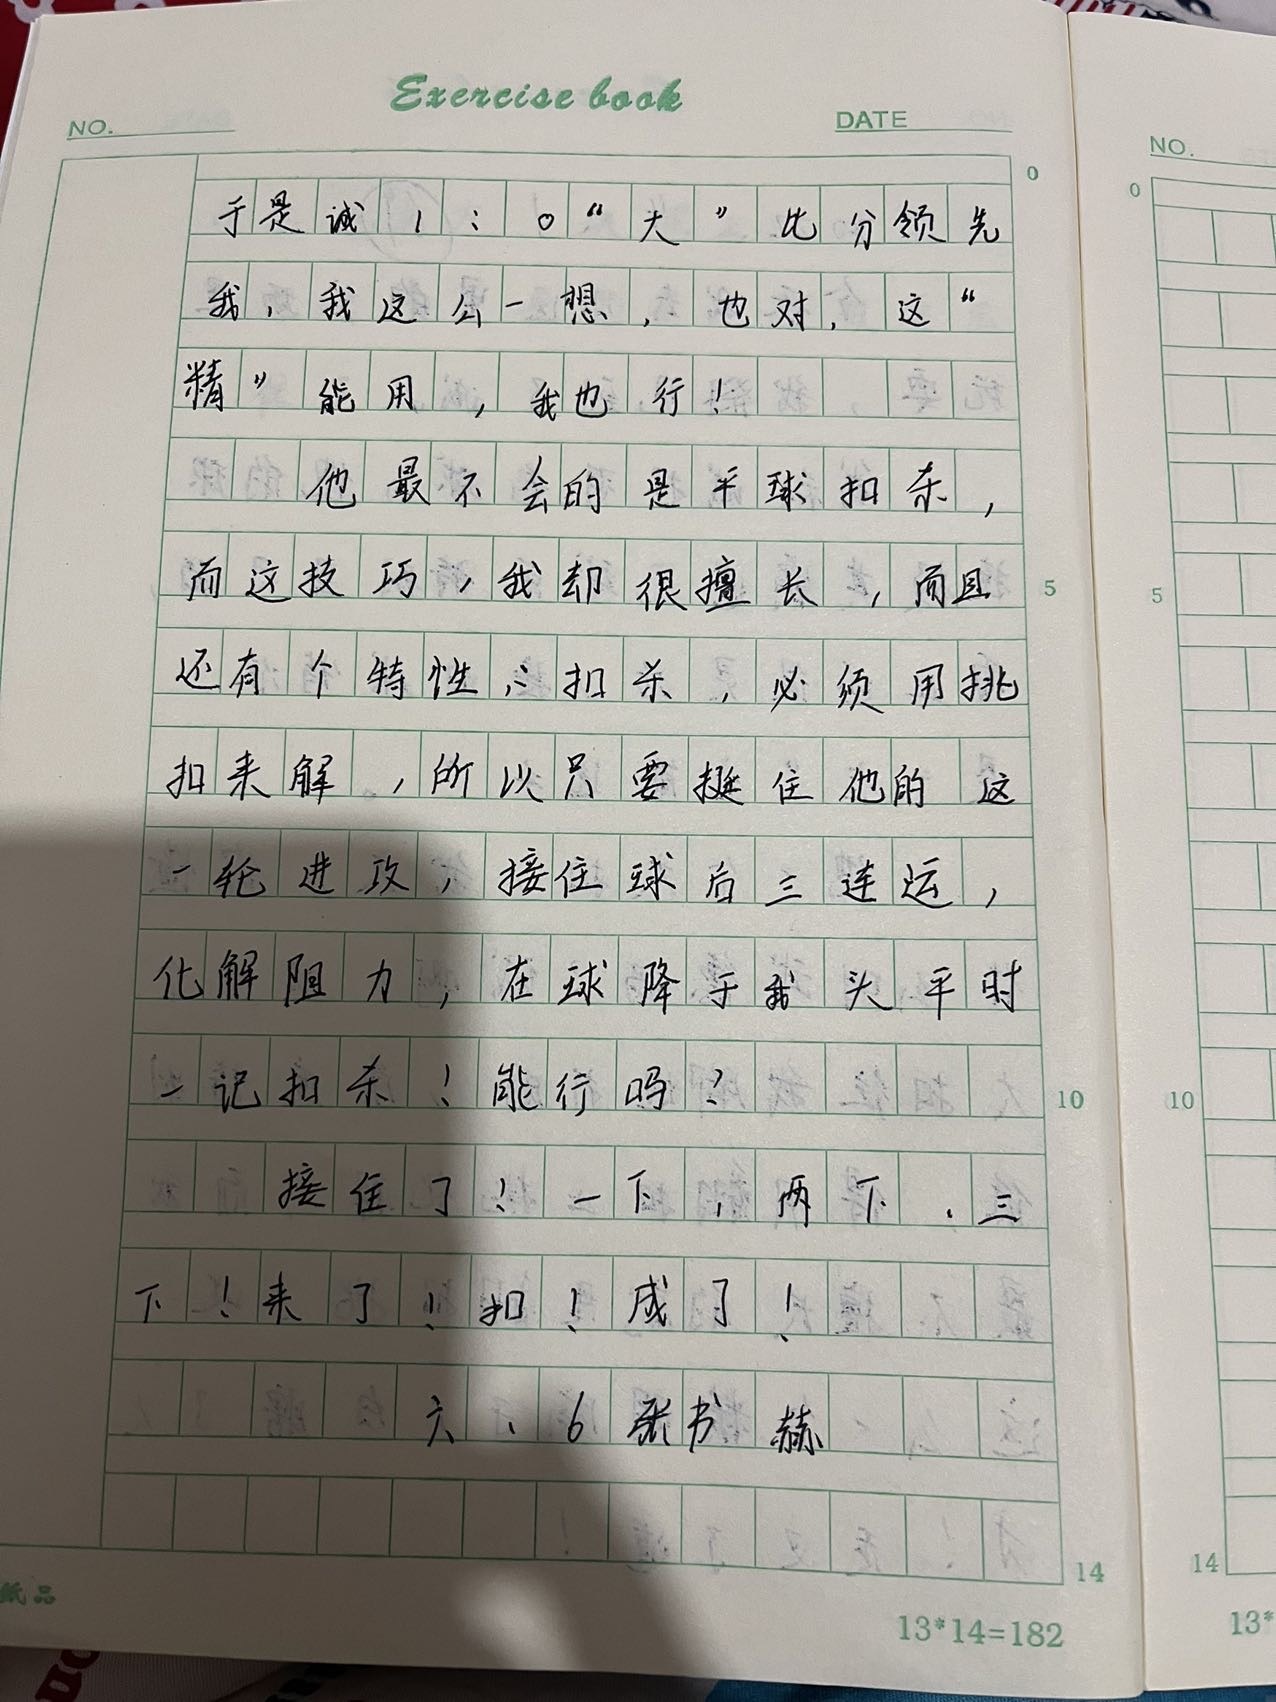 Exercise book
NO.
DATE
NO.
0
0
于是诚1:0“大”比分领先
我,我这么一想,也对,这“
精”能用,我也行!
他最不会的是平球扣杀,
而这技巧,我却很擅长,而且
5
5
还有个特性:扣杀,必须用挑
扣来解。,所以只要挺住他的这
一轮进攻,接住球后三连运,
化解阻力,在球降于我头平时
一记扣杀!能行吗?
10
10
接住了!一下,两下、三
下!来了!扣!成了!
六、6 张书赫
14
14
纸品
13*14=182
13*